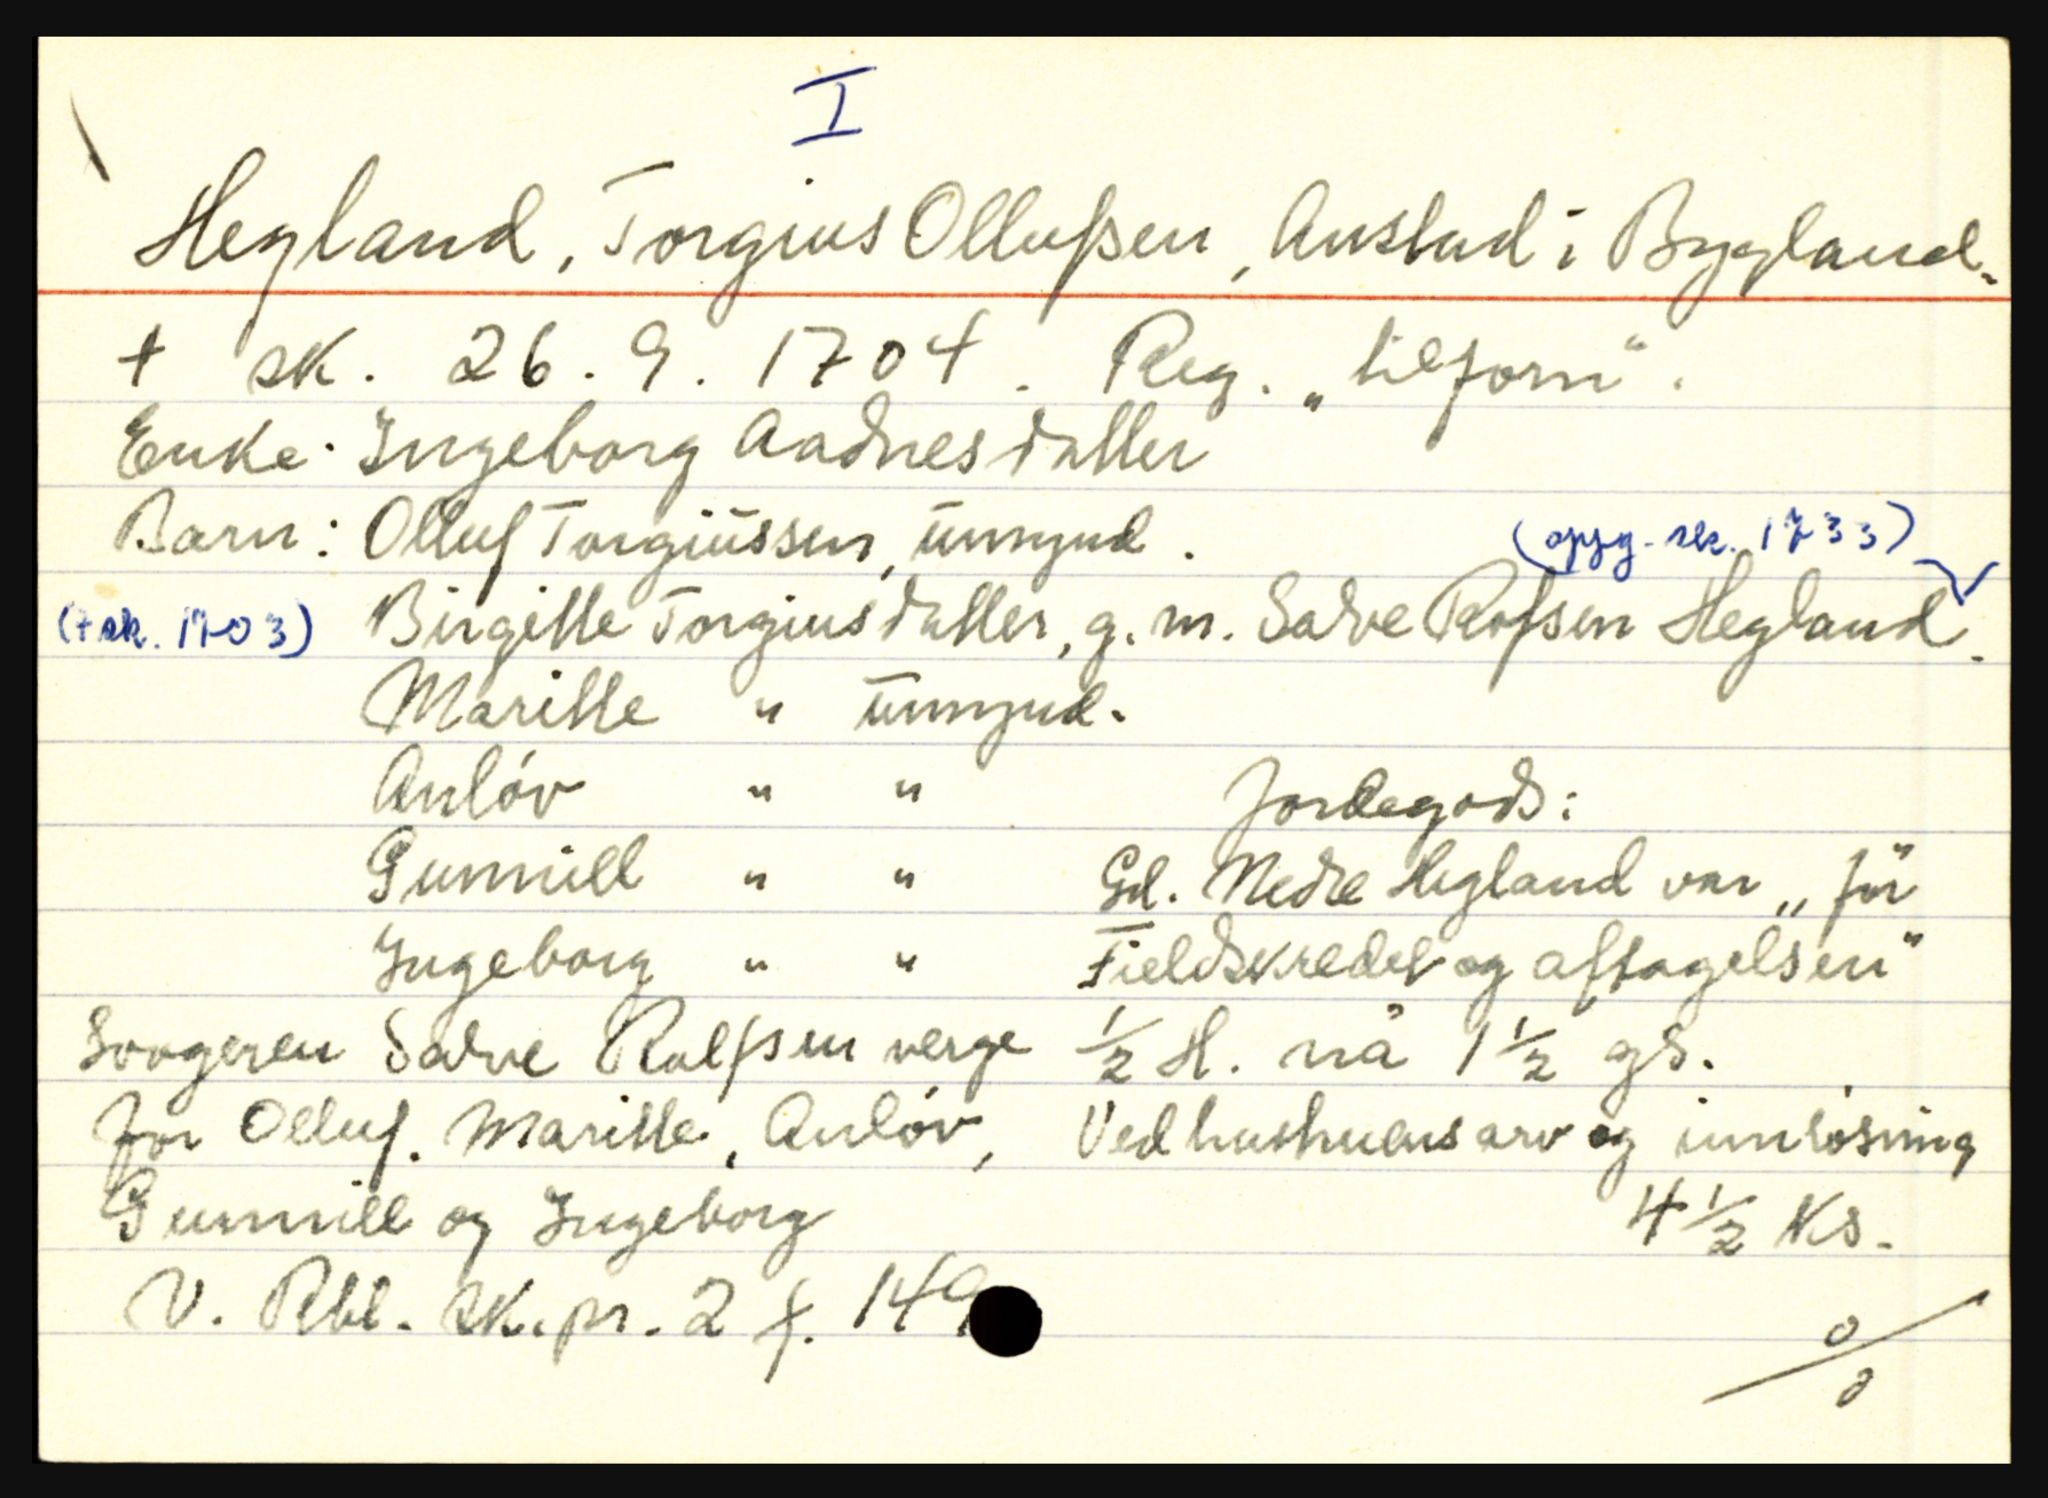 I
Hegland, Torgius Ollufsen, Austad i Bygland.
† sk. 26. 9. 1704. Reg. „tilforn“.
Enke: Ingeborg Aadnesdatter
Barn: Olluf Torgiüssen, ümynd. (oppg. sk. 1733)
(† sk. 1703) Birgitte Torgiusdatter, g. m. Salve Rolfsen Hegland.
Maritte " ümynd.
Anlöv " "
Gunnill " "
Ingeborg " "
Svogeren Salve Rolfsen verge
for Olluf, Maritte, Anlöv,
Gunnill og Ingeborg
V. Rbl. sk.pr. 2 f. 149
Jordegods:
Gd. Nedre Hegland var „för
Fieldskredet og aftagelsen“
1/2 H. nå 1 1/2 gs.
Ved hustruens arv og innløsning
4 1/2 Ks.